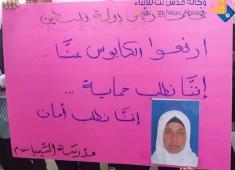 وكالة قدس نت للأنباء
Net News Agency
رئيس دولة فلسطين
ارفعوا الكابوس عنّا ...
إننا نطلب حماية ..
إننا نطلب أمان
مدرسة